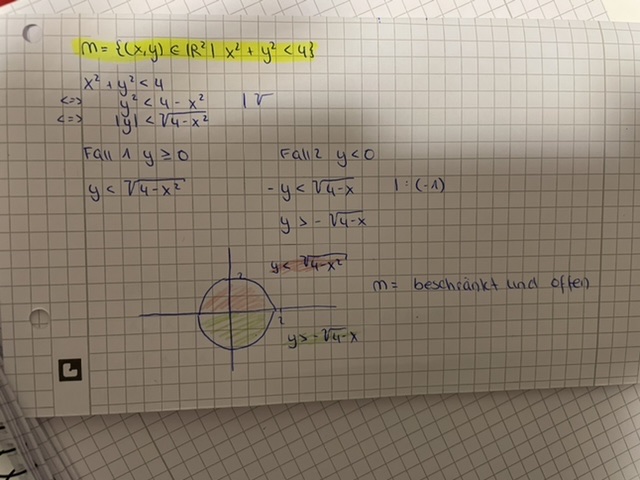 M = {(x,y) ∈ ℝ² | x² + y² < 4}
x² + y² < 4
<=> y² < 4 - x² | √
<=> |y| < √4-x²
Fall 1 y ≥ 0 Fall 2 y < 0
y < √4-x² - y < √4-x | : (-1)
y > - √4-x
y < √4-x²
2
M = beschränkt und offen
2
y > - √4-x